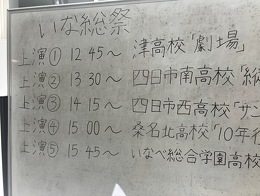 いな総祭
上演① 12 45～ 津高校「劇場」
上演② 13 30～ 四日市南高校「
上演③ 14 15～ 四日市西高校「サン
上演④ 15 00～ 桑名北高校「10年
上演⑤ 15 45～ いなべ総合学園高校